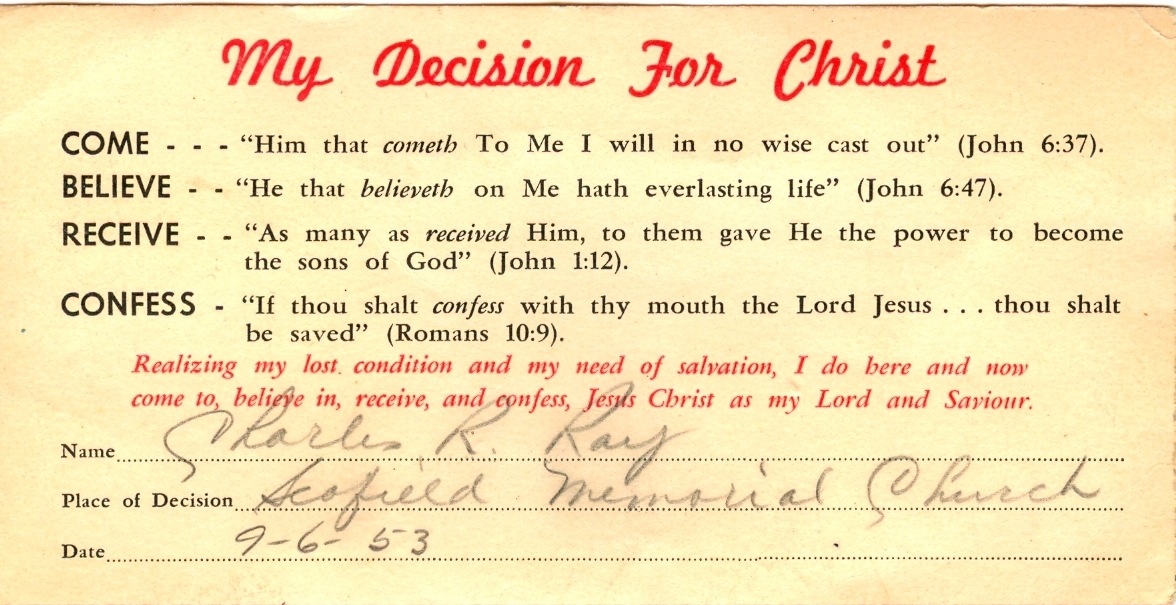 My Decision For Christ
COME - - - “Him that cometh To Me I will in no wise cast out” (John 6:37).
BELIEVE - - “He that believeth on Me hath everlasting life” (John 6:47).
RECEIVE - - “As many as received Him, to them gave He the power to become
the sons of God” (John 1:12).
CONFESS - “If thou shalt confess with thy mouth the Lord Jesus . . . thou shalt
be saved” (Romans 10:9).
Realizing my lost condition and my need of salvation, I do here and now
come to, believe in, receive, and confess, Jesus Christ as my Lord and Saviour.
Name Charles R. Ray
Place of Decision Scofield Memorial Church
Date 9-6-53